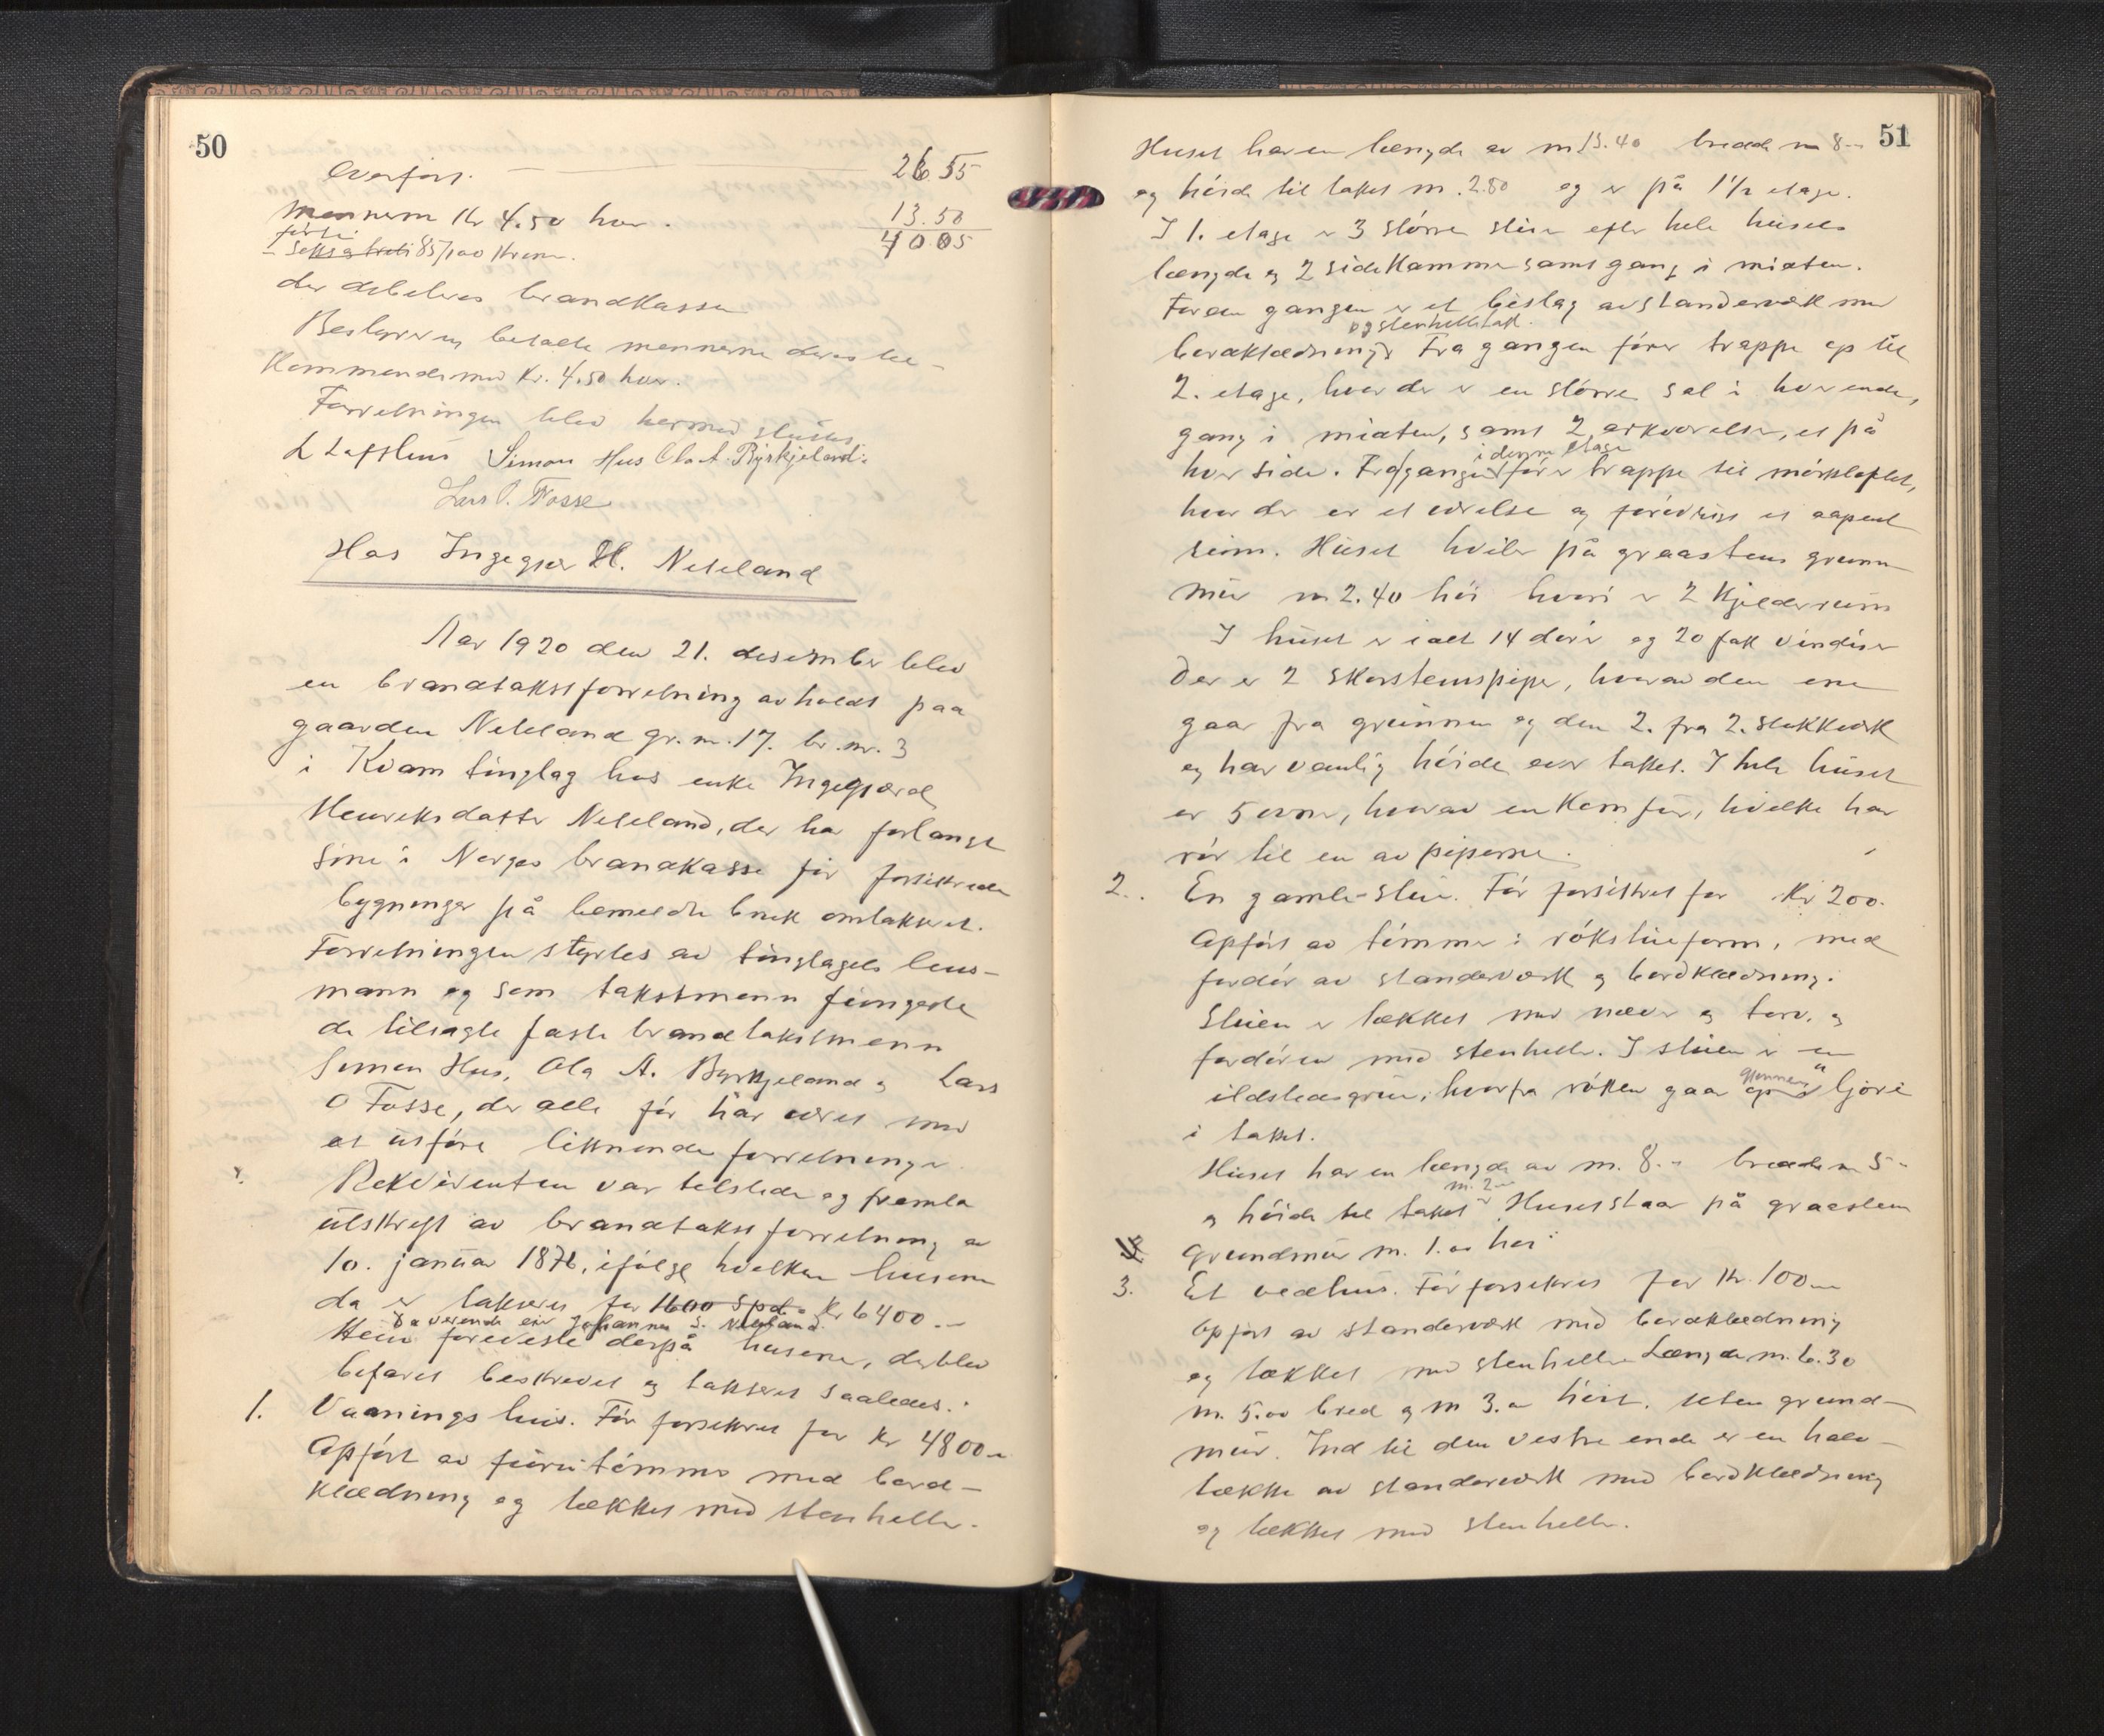 50
Overført. 26.55
Mennerne Kr 4.50 hver. 13.50
40.05
førti
- seksogtreti 85/100 Kroner.
der debiteres brandkassen
Bestyreren betalte mennerne deres til-
kommende med Kr. 4.50 hver.
Forretningen blev hermed sluttet
L Lofthus Simon Hus Ola A. Byrkjeland.
Lars O. Fosse
Hos Ingegjer H. Neteland
Aar 1920 den 21. desember blev
en brandtakstforretning avholdt paa
gaarden Neteland gr. nr. 17. br. nr. 3
i Kvam tinglag hos enke Ingegjerd
Henriksdatter Neteland, der har forlangt
sine i Norges brandkasse før forsikrede
bygninger på bemeldte bruk omtaksert.
Forretningen styrtes av tinglagets lens-
mann og som takstmenn fungerte
de tilsagte faste brandtakstmenn
Simon Hus, Ola A. Byrkjeland og Lars
O Fosse, der alle før har været med
at utføre liknende forretninger
Rekvirenten var tilstede og framla
utskrift av brandtakstforretning av
10. januar 1876, ifølge hvilken husene
da er takseret for 1600 Spd. Kr 6400.-
Daværende eier Johannes S. Neteland.
Hun foreviste derpå husene, der blev
befaret beskrevet og takseret saaledes:
1. Vaaningshus. Før forsikret for Kr 4800.-
Opført av furutømmer med bord-
klædning og tækket med stenheller.
51
Huset har en længde av m 13.40 bredde m 8.-
og høide til taket m. 2.80 og er på 1 1/2 etage.
I 1. etage er 3 større stuer efter hele husets
længde og 2 sidekammer samt gang i midten.
Foran gangen er et bislag av standerverk med
og stenhelletak.
bordklædning. Fra gangen fører trappe op til
2. etage, hvor der er en større sal i hver ende,
gang i midten, samt 2 arkværelser, et på
i denne etage
hver side. Fra gangen fører trappe til mørkloftet,
hvor der er et værelse og forøvrigt et aapent
rum. Huset hviler på graastens grunn-
mur m 2.40 høi hvori er 2 kjelderrum
I huset er i alt 14 dører og 20 fak vinduer
Der er 2 skorstenspiper, hvorav den ene
gaar fra grunnen og den 2. fra 2. stokkverk
og har vanlig høide over taket. I hele huset
er 5 ovner, hvorav en komfur, hvilke har
rør til en av piperne.
2. En gamle-stue. Før forsikret for Kr 200.
Opført av tømmer i røkstueform, med
fordør av standerverk og bordklædning.
Stuen er tækket med never og torv, og
fordøren med stenheller. I stuen er en
gjennem
ildstedsgrue, hvorfra røken gaar op ljore
i taket.
Huset har en længde av m. 8.- bredde m 5.-
m. 2.-
og høide til taket Huset staar på graasten
grundmur m. 1.00 høi.
3. Et vedhus. Før forsikret for Kr. 100.-
Opført av standerverk med bordklædning
og tækket med stenheller Længde m. 6.30
m. 5.00 bred og m 3.- høit. uten grund-
mur. Ind til den vestre ende er en halv-
tække av standerverk med bordklædning
og tækket med stenheller.